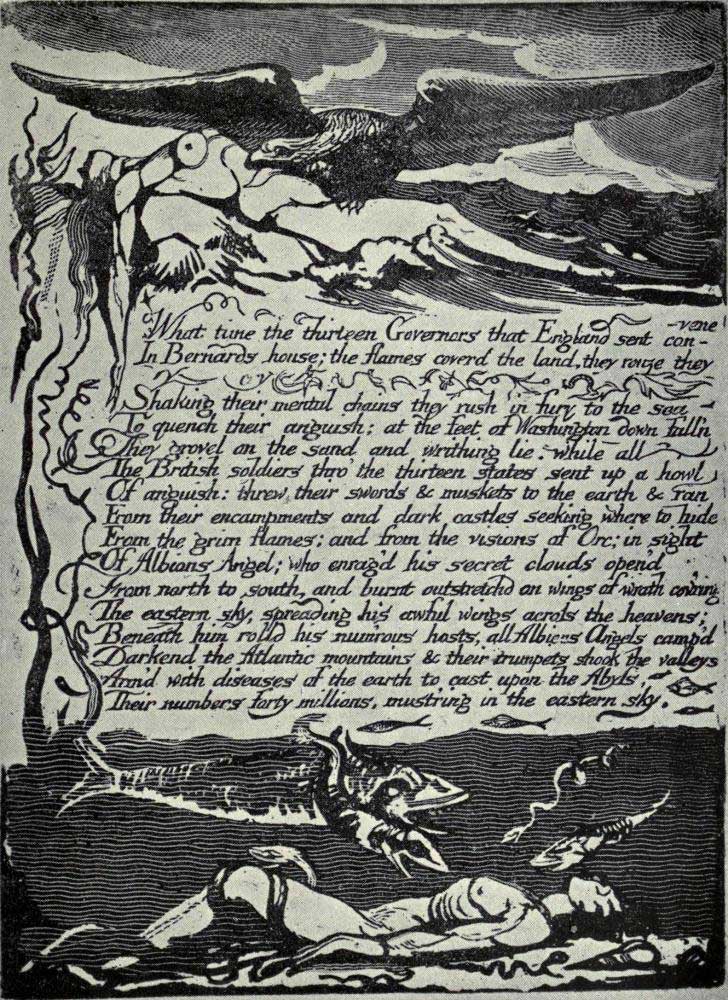 What time the thirteen Governors that England sent con-
-vene
In Bernards house; the flames coverd the land, they rouze they cry
Shaking their mental chains they rush in fury to the sea
To quench their anguish; at the feet of Washington down fall'n
They grovel on the sand and writhing lie. while all
The British soldiers thro' the thirteen states sent up a howl
Of anguish: threw their swords & muskets to the earth & ran
From their encampments and dark castles seeking where to hide
From the grim flames; and from the visions of Orc; in sight
Of Albions Angel; who enrag'd his secret clouds open'd
From north to south, and burnt outstretchd on wings of wrath cov'ring
The eastern sky, spreading his awful wings across the heavens;
Beneath him rolld his num'rous hosts, all Albions Angels camp'd
Darkend the Atlantic mountains & their trumpets shook the valleys
Arm'd with diseases of the earth to cast upon the Abyss,
Their numbers forty millions, must'ring in the eastern sky.